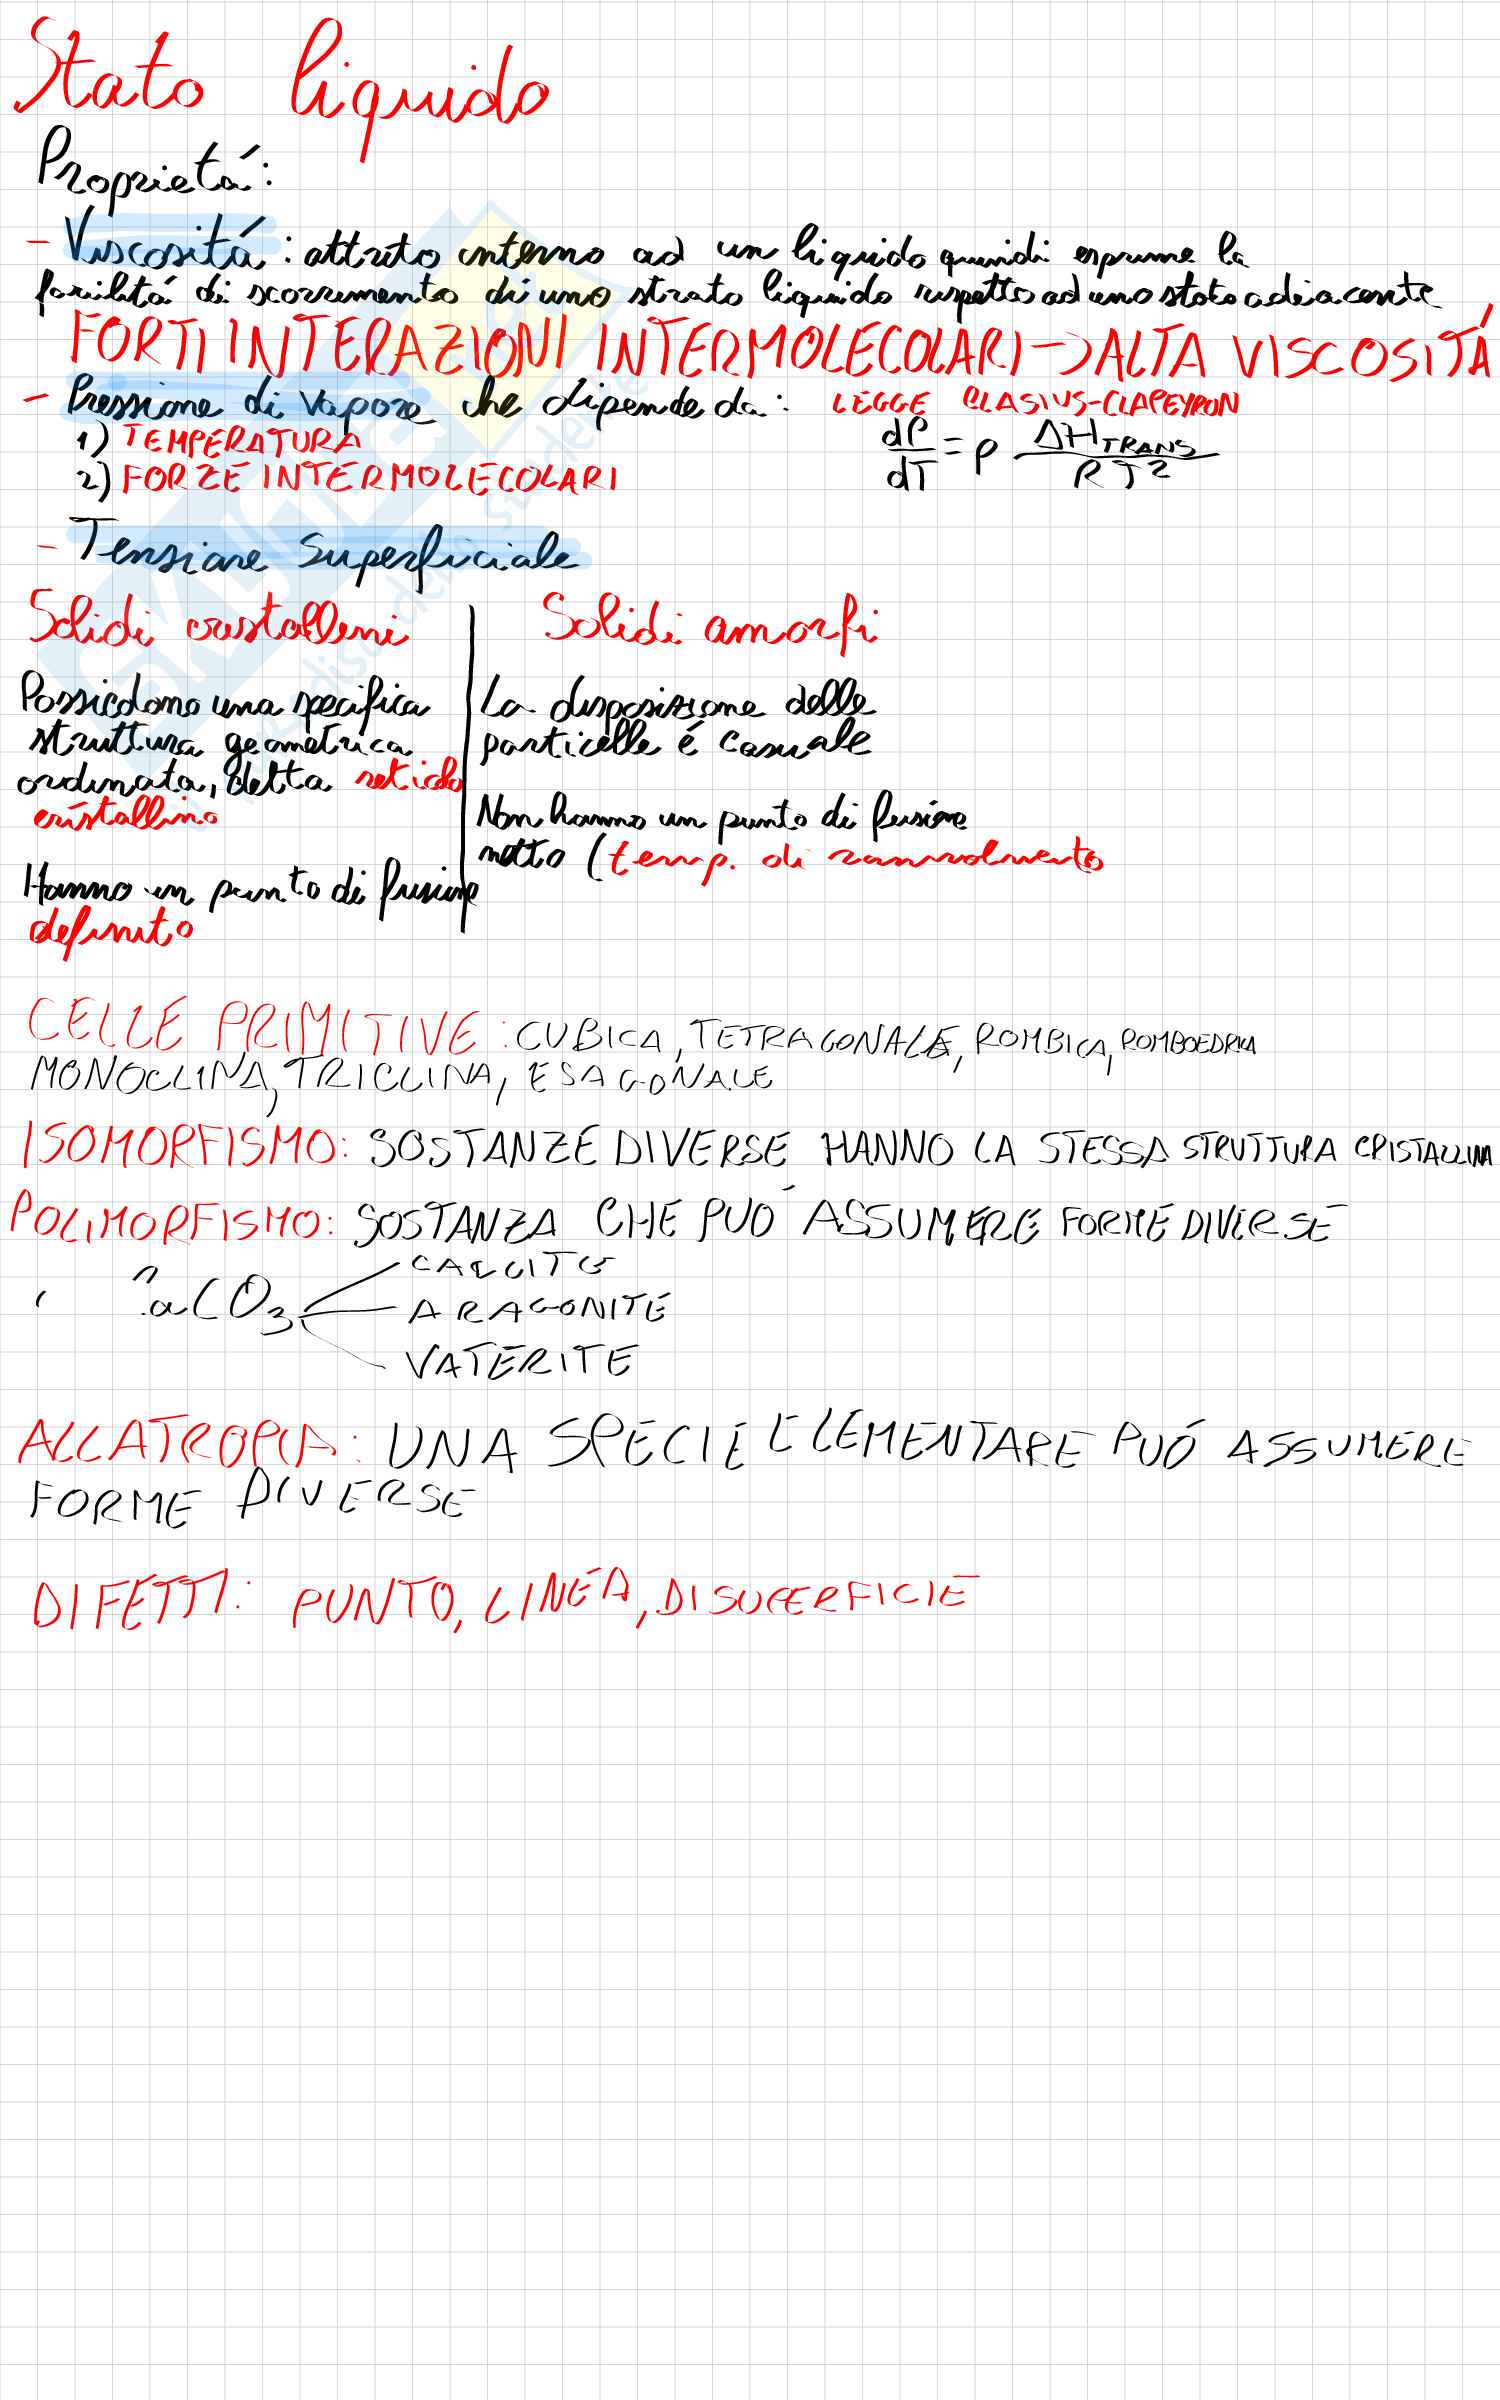 Stato liquido
Proprietá:
- Viscositá: attrito interno ad un liquido quindi esprime la
facilitá di scorrimento di uno strato liquido rispetto ad uno stato adiacente
FORTI INTERAZIONI INTERMOLECOLARI -> ALTA VISCOSITÁ
- Pressione di vapore che dipende da: LEGGE CLASIUS-CLAPEYRON
1) TEMPERATURA
2) FORZE INTERMOLECOLARI
dP/dT = P ΔHTRANS/RT²
- Tensione superficiale
Solidi cristallini
Possiedono una specifica
struttura geometrica
ordinata, detta reticolo
cristallino
Hanno un punto di fusione
definito
Solidi amorfi
La disposizione delle
particelle é casuale
Non hanno un punto di fusione
netto (temp. di rammolimento
CELLE PRIMITIVE: CUBICA, TETRAGONALE, ROMBICA, ROMBOEDRICA
MONOCLINA, TRICLINA, ESAGONALE
ISOMORFISMO: SOSTANZE DIVERSE HANNO LA STESSA STRUTTURA CRISTALLINA
POLIMORFISMO: SOSTANZA CHE PUÓ ASSUMERE FORME DIVERSE
CaCO₃
CALCITE
ARAGONITE
VATERITE
ALLATROPIA: UNA SPECIE ELEMENTARE PUÓ ASSUMERE
FORME DIVERSE
DIFETTI: PUNTO, LINEA, DI SUPERFICIE